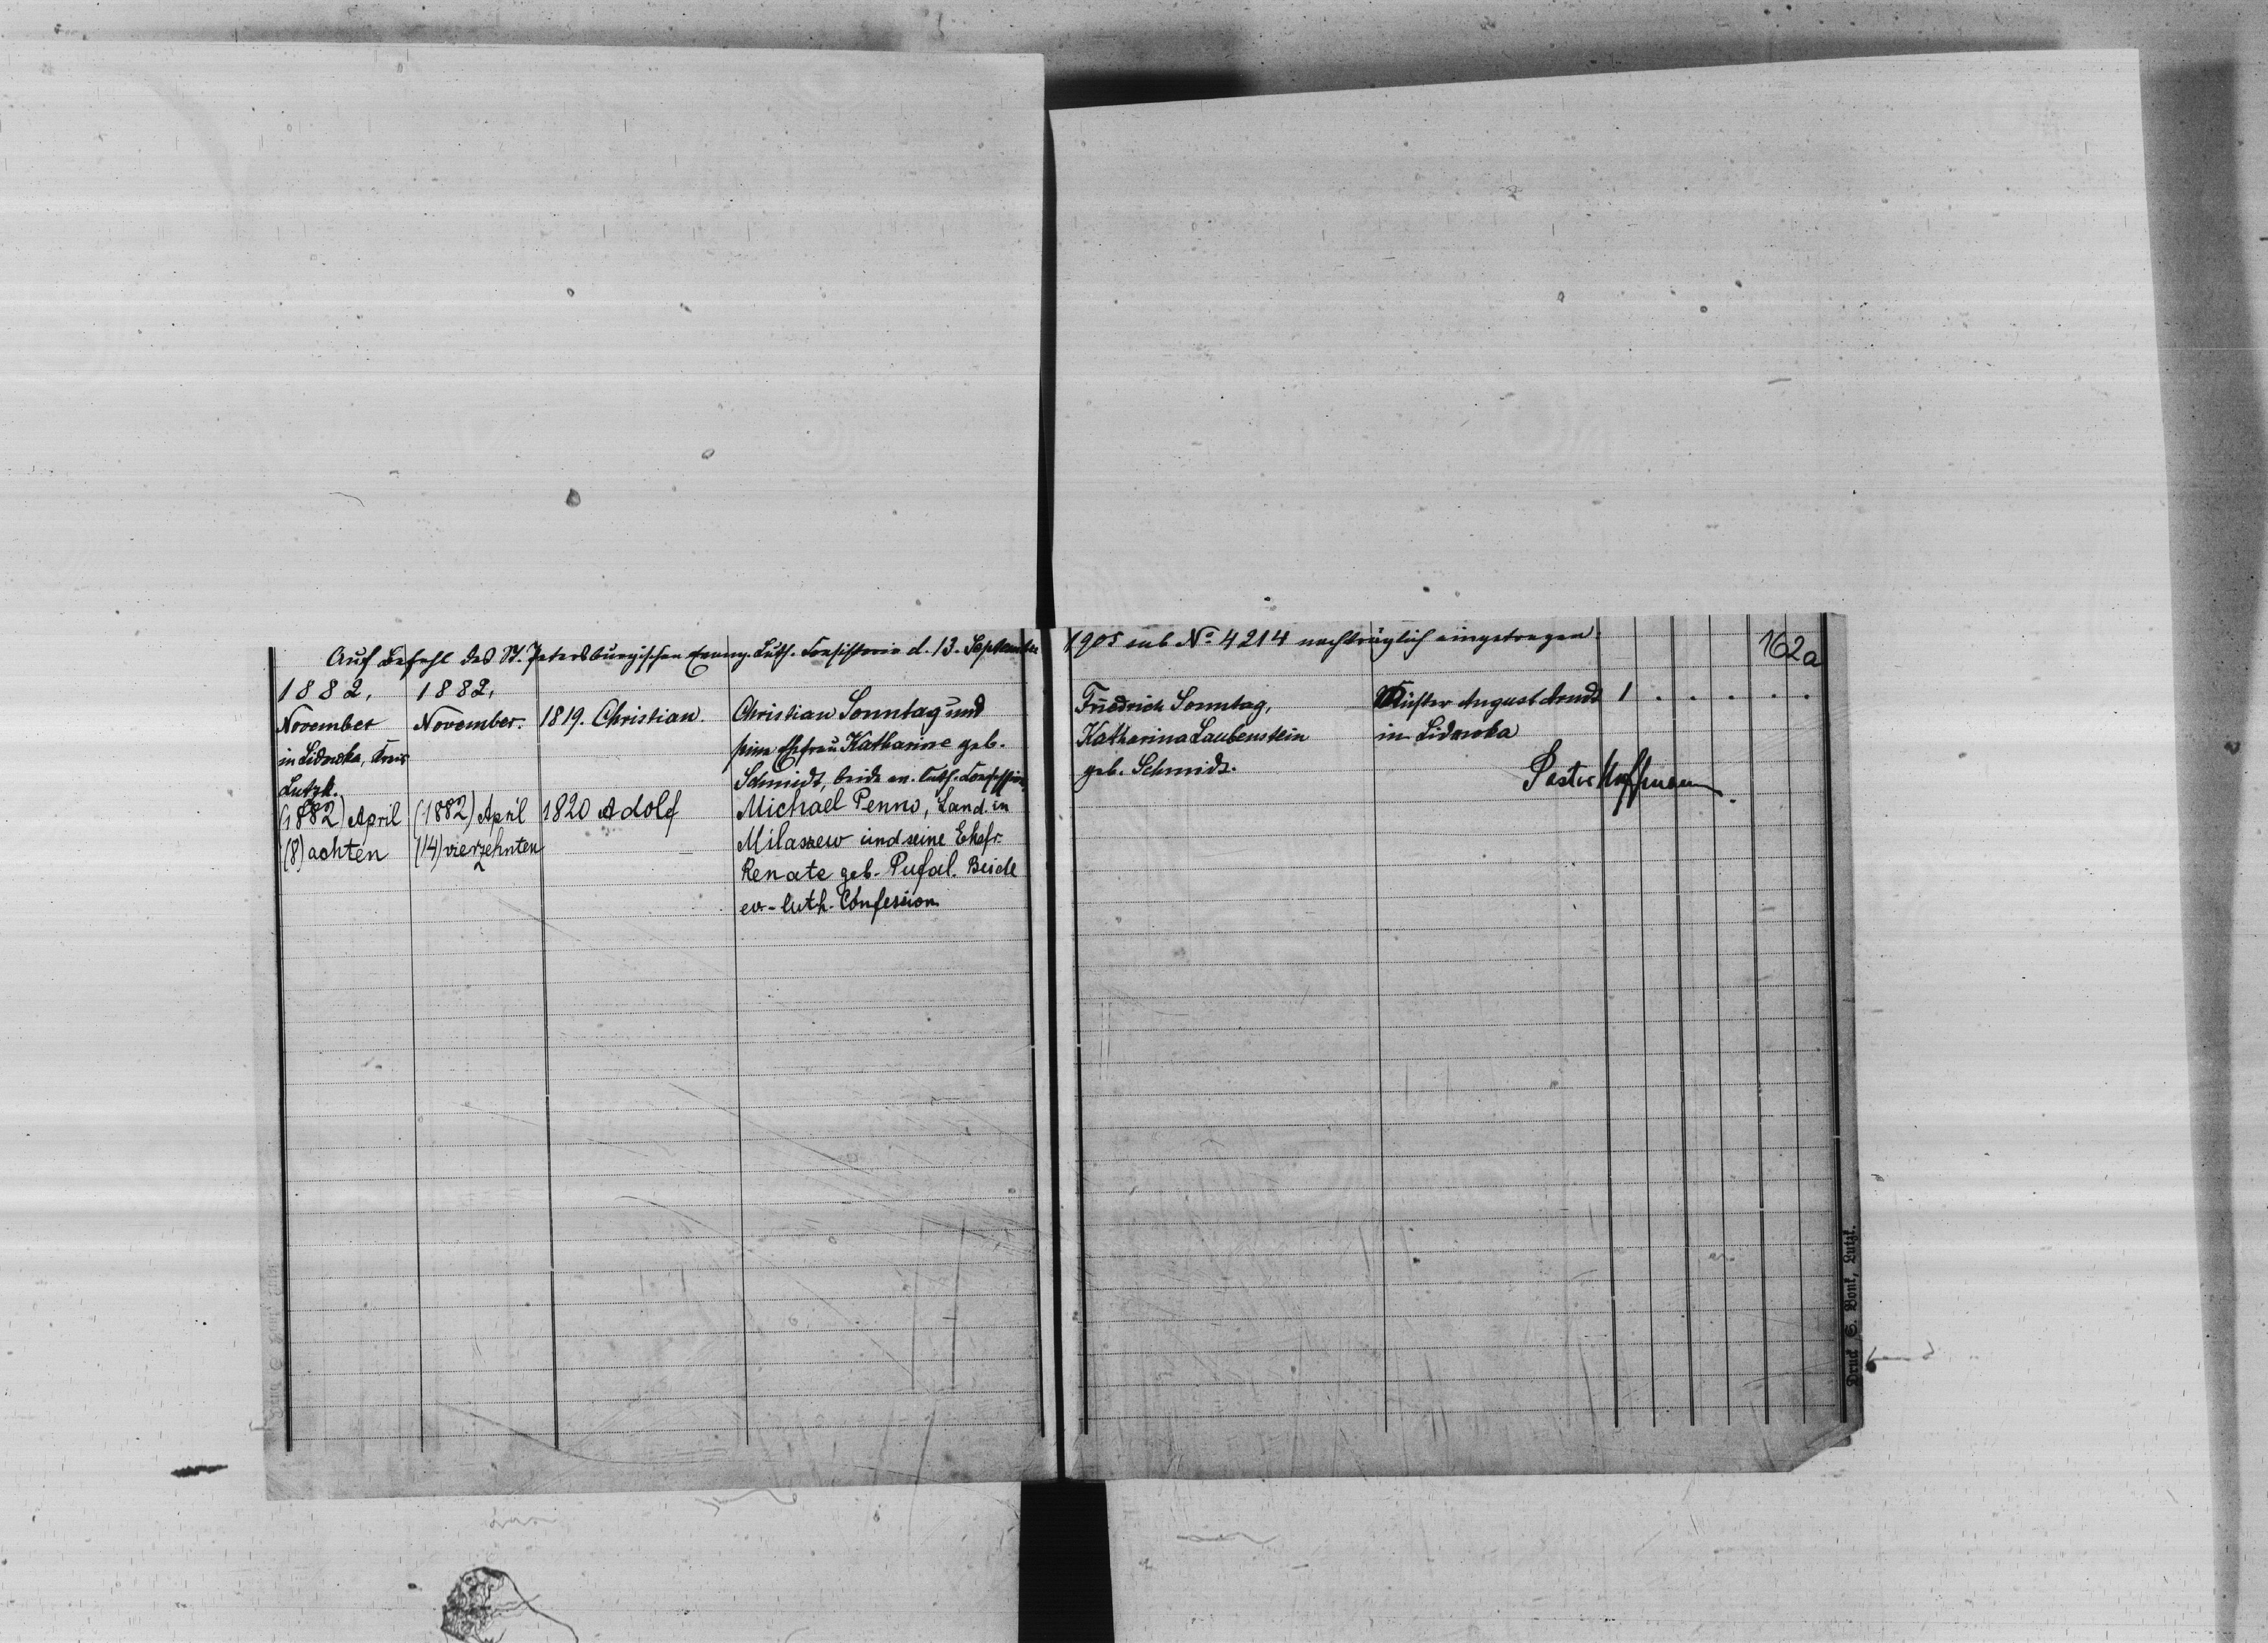 Auf Befehl des St. Petersburgischen Evang. Luth. Consistorio d. 13. September 1905 sub No 4214 nachträglich eingetragen.
162a
1882, 1882,
November November. 1819. Christian. Christian Sonntag und Friedrich Sonntag, Küster August Arndt 1 . . . . .
in Lidowka, Kreis seine Ehefrau Katharine geb. Katharina Laubenstein in Lidowka
Lutzk. Schmidt, beide ev. luth. Confession. geb. Schmidt. Pastor Hoffmann.
(1882) April (1882) April 1820 Adolf Michael Penno, Land. in
(8) achten (14) vierzehnten Milaszew und seine Ehefr.
Renate geb. Pufal. Beide
ev-luth. Confession
Druck S. Bonk, Lutzk.